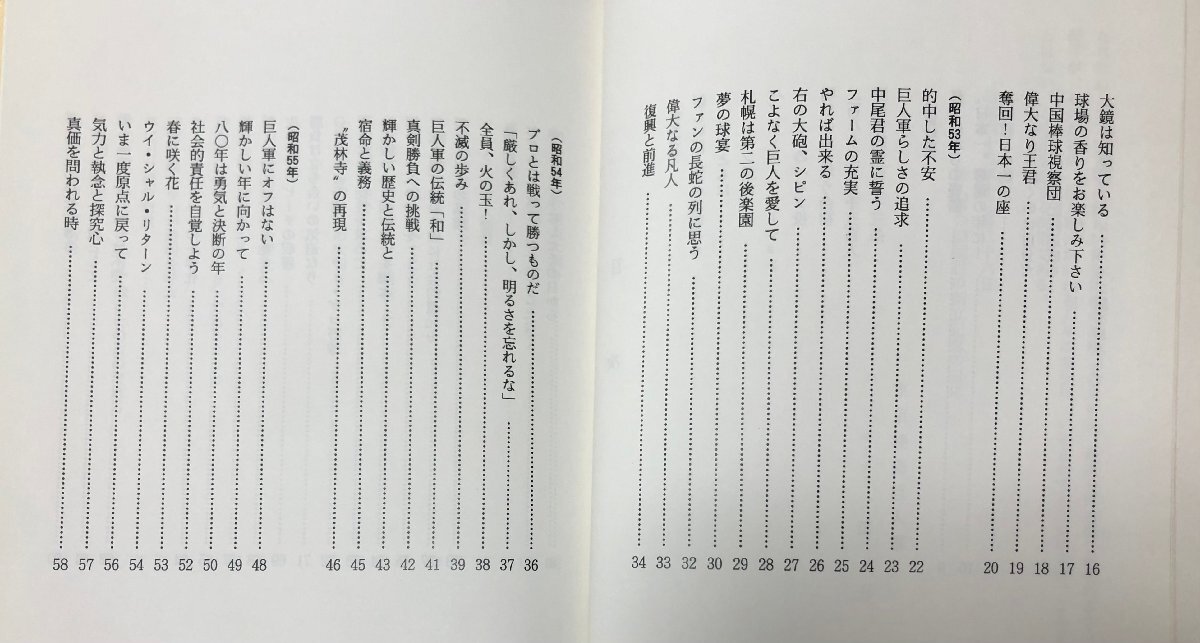 大鏡は知っている……16
球場の香りをお楽しみ下さい……17
中国棒球視察団……18
偉大なり王君……19
奪回！日本一の座……20
（昭和53年）
的中した不安……22
巨人軍らしさの追求……23
中尾君の霊に誓う……24
ファームの充実……25
やれば出来る……26
右の大砲、シピン……27
こよなく巨人を愛して……28
札幌は第二の後楽園……29
夢の球宴……30
ファンの長蛇の列に思う……32
偉大なる凡人……33
復興と前進……34
（昭和54年）
プロとは戦って勝つものだ……36
「厳しくあれ、しかし、明るさを忘れるな」……37
全員、火の玉！……38
不滅の歩み……39
巨人軍の伝統「和」……41
真剣勝負への挑戦……42
輝かしい歴史と伝統と……43
宿命と義務……45
〝茂林寺〟の再現……46
（昭和55年）
巨人軍にオフはない……48
輝かしい年に向かって……49
八〇年は勇気と決断の年……50
社会的責任を自覚しよう……52
春に咲く花……53
ウイ・シャル・リターン……54
いま一度原点に戻って……56
気力と執念と探究心……57
真価を問われる時……58